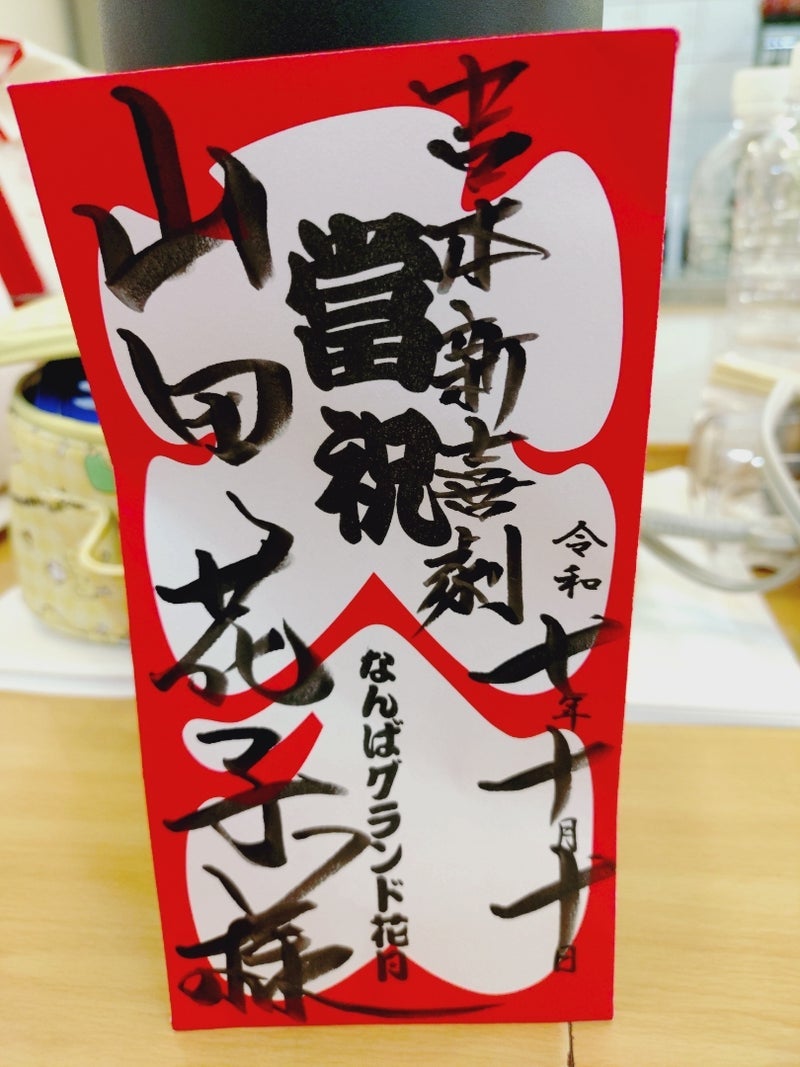 令和七年十月十日
吉本新喜劇
當祝
なんばグランド花月
山田花子様